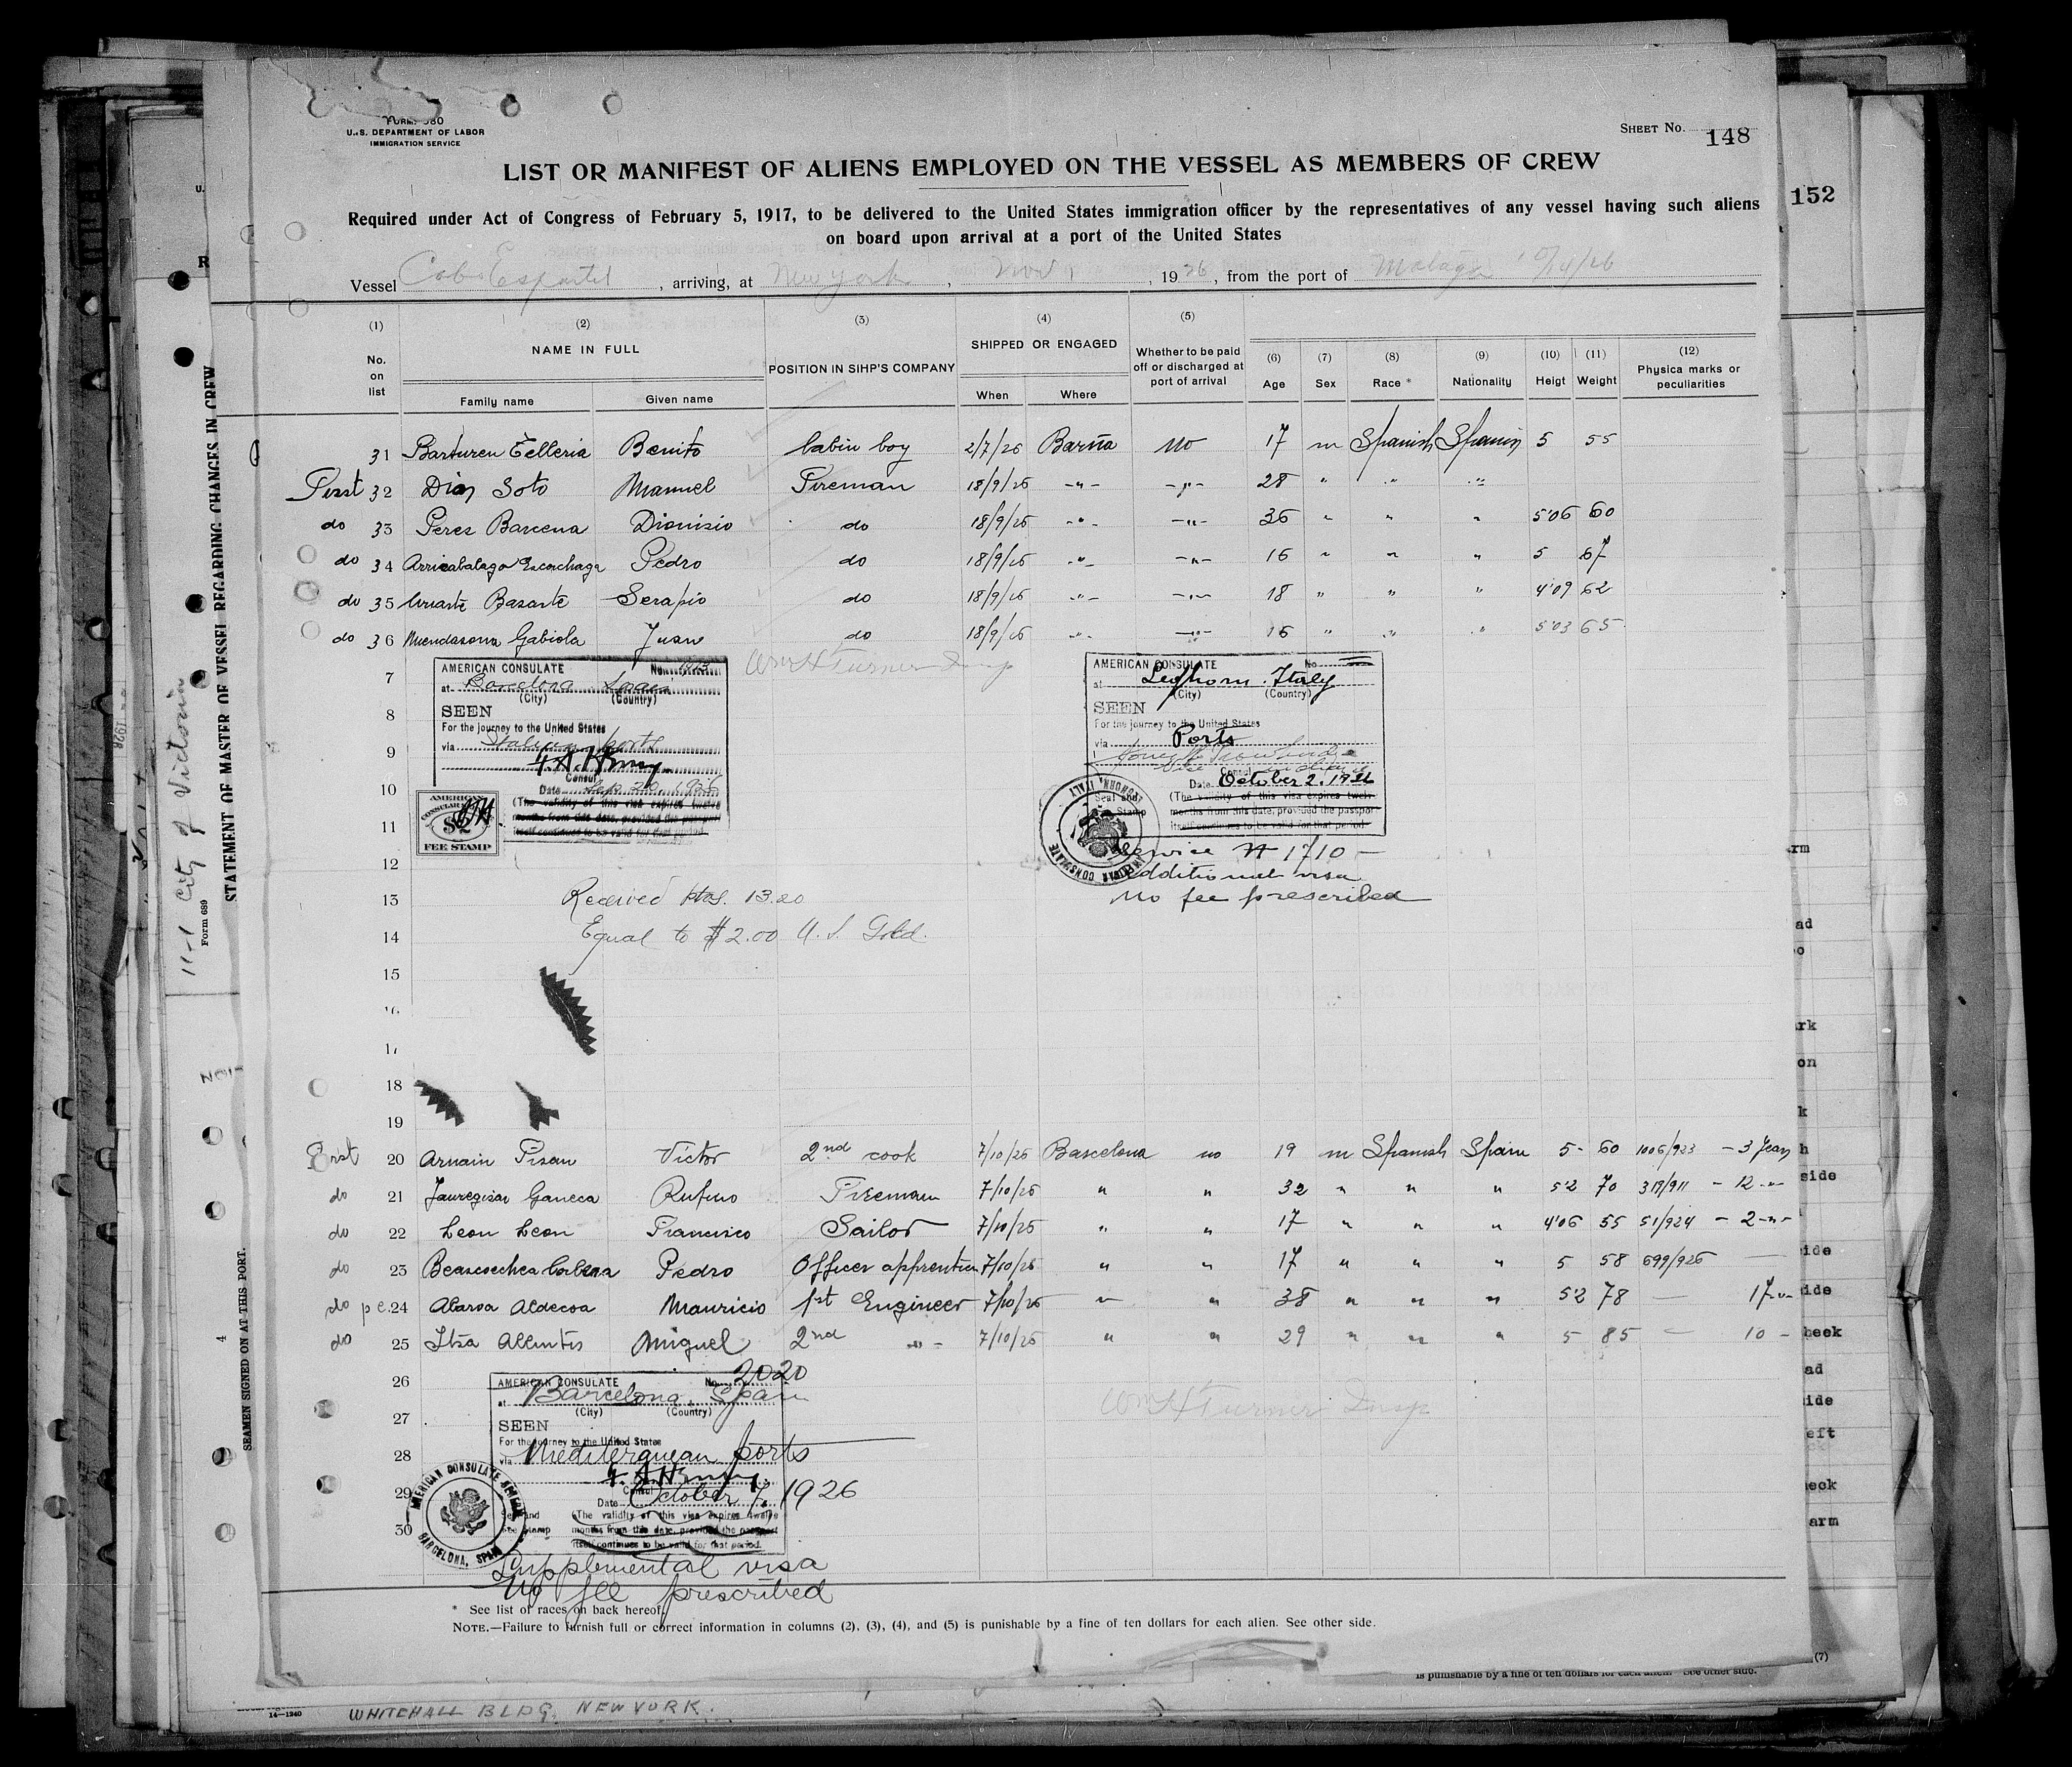 FORM 680
U.S. DEPARTMENT OF LABOR
IMMIGRATION SERVICE
SHEET No. 148
152
LIST OR MANIFEST OF ALIENS EMPLOYED ON THE VESSEL AS MEMBERS OF CREW
Required under Act of Congress of February 5, 1917, to be delivered to the United States immigration officer by the representatives of any vessel having such aliens
on board upon arrival at a port of the United States
Vessel Cabo Espartel, arriving, at New York, Nov 1, 1926, from the port of Malaga 10/14/26
(1) (2) (3) (4) (5)
No. on list NAME IN FULL POSITION IN SIHP'S COMPANY SHIPPED OR ENGAGED Whether to be paid off or discharged at port of arrival (6) Age (7) Sex (8) Race * (9) Nationality (10) Heigt (11) Weight (12) Physica marks or peculiarities
Family name Given name When Where
31 Barturen Telleria Benito Cabin boy 2/7/26 Barña no 17 m Spanish Spanis 5 55
First 32 Diaz Soto Manuel Fireman 18/9/26 -"- -"- 28 " " "
do 33 Perez Barcena Dionisio do 18/9/26 -"- -"- 36 " " " 5'06 60
do 34 Arrizabalaga Pedro do 18/9/26 -"- -"- 16 " " " 5 67
do 35 Basarte Serapio do 18/9/26 -"- -"- 18 " " " 4'09 62
do 36 Gabiola Juan do 18/9/26 -"- -"- 16 " " " 5'03 65
Wm H Turner Insp
7
AMERICAN CONSULATE No.
at Barcelona Spain
(City) (Country)
SEEN
For the journey to the United States
via Italian ports
Consul
Date Sep. 20, 1926
(The validity of this visa expires twelve
months from this date, provided the passport
itself continues to be valid for that period.
AMERICAN CONSULAR $2 FEE STAMP
AMERICAN CONSULATE No
at Leghorn. Italy
(City) (Country)
SEEN
For the journey to the United States
via Ports
Consul
Date October 2. 1926
Seal and Stamp
(The validity of this visa expires twelve
months from this date, provided the passport
itself continues to be valid for that period
AMERICAN CONSULATE LEGHORN, ITALY
Service No 1710 -
additional visa
no fee prescribed
8
9
10
11
12
13
Received Ptas. 13.20
14
Equal to $2.00 U.S. Gold.
15
16
17
18
19
First 20 Arnain Pisan Victor 2nd cook 7/10/26 Barcelona no 19 m Spanish Spain 5- 60 1006/923 - 3 years
do 21 Rufino Fireman 7/10/26 " " 32 " " " 5'2 70 319/911 - 12 -"-
do 22 Leon Leon Francisco Sailor 7/10/26 " " 17 " " " 4'06 55 51/924 - 2 -"-
do 23 Pedro Officer apprentice 7/10/26 " " 17 " " " 5 58 699/926 —
do p c. 24 Abaroa Aldecoa Mauricio 1st Engineer 7/10/26 " " 38 " " " 5'2 78 — 17 -"-
do 25 Miguel 2nd -"- 7/10/26 " " 29 " " " 5 85 — 10 -
26
27
28
29
30
AMERICAN CONSULATE No. 2020
at Barcelona, Spain
(City) (Country)
SEEN
For the journey to the United States
via Mediterranean ports
Consul
Date October 7, 1926
Seal and Fee Stamp
(The validity of this visa expires twelve
months from this date, provided the passport
itself continues to be valid for that period.
BARCELONA, SPAIN
Supplemental visa
No fee prescribed
Wm H Turner Insp
* See list of races on back hereof.
NOTE.—Failure to furnish full or correct information in columns (2), (3), (4), and (5) is punishable by a fine of ten dollars for each alien. See other side.
is punishable by a fine of ten dollars for each alien. See other side.
(7)
14—1240
WHITEHALL BLDG, NEW YORK.
11-1 City of Victoria
Form 689
STATEMENT OF MASTER OF VESSEL REGARDING CHANGES IN CREW
SEAMEN SIGNED ON AT THIS PORT.
4